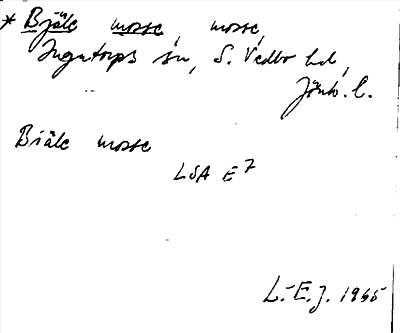 * Bjäle mosse, mosse,
Ingatorps sn, S. Vedbo hd,
Jönk. l.
Biäle mosse
LSA E7
L.-E. J. 1965